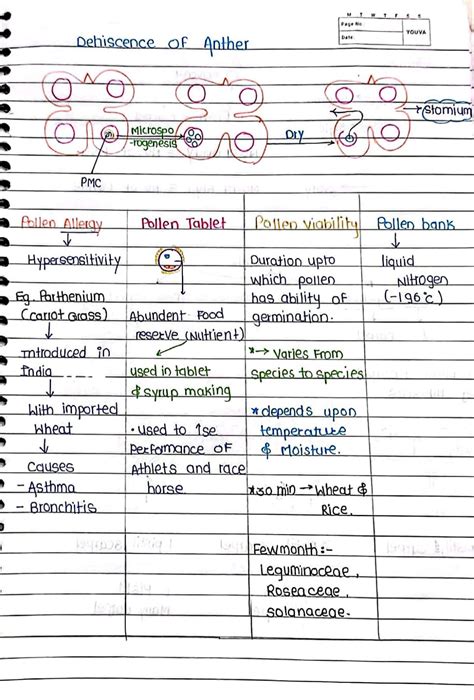 M T W T F S S
Page No.
Date:
YOUVA
Dehiscence of Anther
Microspo
-rogenesis
Dry
Stomium
PMC
Pollen Allergy
Hypersensitivity
Eg. Parthenium
(carrot Grass)
Introduced in
India
With imported
Wheat
Causes
- Asthma
- Bronchitis
Pollen Tablet
Abundent Food
reserve (Nutrient)
used in tablet
& syrup making
• used to ↑se
Performance of
Athlets and race
horse
Pollen viability
Duration upto
which pollen
has ability of
germination.
*→ Varies From
species to species
* depends upon
temperature
& Moisture.
*30 min → Wheat &
Rice.
Few month :-
Leguminoceae,
Roseaceae,
solanaceae.
Pollen bank
liquid
Nitrogen
(-196°c)